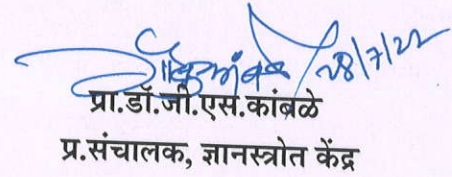 28/7/22
प्रा.डॉ.जी.एस.कांबळे
प्र.संचालक, ज्ञानस्त्रोत केंद्र